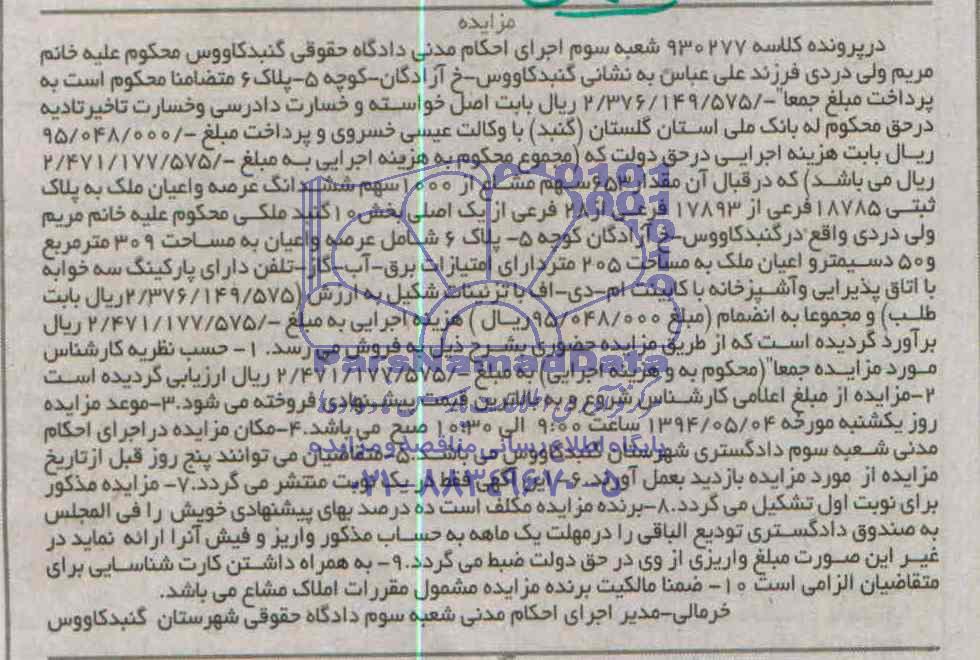 مزایده
درپرونده کلاسه ۹۳۰۲۷۷ شعبه سوم اجرای احکام مدنی دادگاه حقوقی گنبدکاووس محکوم علیه خانم
مریم ولی دردی فرزند علی عباس به نشانی گنبدکاووس-خ آزادگان-کوچه ۵-پلاک ۶ متضامنا محکوم است به
پرداخت مبلغ جمعا" -/۲/۳۷۶/۱۴۹/۵۷۵ ریال بابت اصل خواسته و خسارت دادرسی وخسارت تاخیرتادیه
درحق محکوم له بانک ملی استان گلستان (گنبد) با وکالت عیسی خسروی و پرداخت مبلغ -/۹۵/۰۴۸/۰۰۰
ریال بابت هزینه اجرایی درحق دولت که (مجموع محکوم به هزینه اجرایی به مبلغ -/۲/۴۷۱/۱۷۷/۵۷۵
ریال می باشد) که درقبال آن مقدار ۶۵۳سهم مشاع از ۱۰۰۰سهم ششدانگ عرصه واعیان ملک به پلاک
ثبتی ۱۸۷۸۵فرعی از ۱۷۸۹۳ فرعی از ۲۸ فرعی از یک اصلی بخش ۱۰گنبد ملکی محکوم علیه خانم مریم
ولی دردی واقع درگنبدکاووس-خ آزادگان کوچه ۵- پلاک ۶ شامل عرصه واعیان به مساحت ۳۰۹ مترمربع
و۵۰ دسیمترو اعیان ملک به مساحت ۲۰۵ متردارای امتیازات برق-آب-گاز-تلفن دارای پارکینگ سه خوابه
با اتاق پذیرایی وآشپزخانه با کابینت ام-دی-اف با تزئینات شکیل به ارزش (۲/۳۷۶/۱۴۹/۵۷۵ریال بابت
طلب) و مجموعا به انضمام (مبلغ ۹۵/۰۴۸/۰۰۰ریال ) هزینه اجرایی به مبلغ -/۲/۴۷۱/۱۷۷/۵۷۵ ریال
برآورد گردیده است که از طریق مزایده حضوری بشرح ذیل به فروش می رسد. ۱- حسب نظریه کارشناس
مورد مزایده جمعا"(محکوم به و هزینه اجرایی) به مبلغ -/۲/۴۷۱/۱۷۷/۵۷۵ ریال ارزیابی گردیده است
۲-مزایده از مبلغ اعلامی کارشناس شروع و به بالاترین قیمت پیشنهادی فروخته می شود.۳-موعد مزایده
روز یکشنبه مورخه ۱۳۹۴/۰۵/۰۴ ساعت ۹:۰۰ الی ۱۰:۳۰ صبح می باشد.۴-مکان مزایده دراجرای احکام
مدنی شعبه سوم دادگستری شهرستان گنبدکاووس می باشد.۵-متقاضیان می توانند پنج روز قبل ازتاریخ
مزایده از مورد مزایده بازدید بعمل آورند.۶-این آگهی فقط در یک نوبت منتشر می گردد.۷- مزایده مذکور
برای نوبت اول تشکیل می گردد.۸-برنده مزایده مکلف است ده درصد بهای پیشنهادی خویش را فی المجلس
به صندوق دادگستری تودیع الباقی را درمهلت یک ماهه به حساب مذکور واریز و فیش آنرا ارائه نماید در
غیر این صورت مبلغ واریزی از وی در حق دولت ضبط می گردد.۹- به همراه داشتن کارت شناسایی برای
متقاضیان الزامی است ۱۰- ضمنا مالکیت برنده مزایده مشمول مقررات املاک مشاع می باشد.
خرمالی-مدیر اجرای احکام مدنی شعبه سوم دادگاه حقوقی شهرستان گنبدکاووس
ParsNamadData
پایگاه اطلاع رسانی مناقصه و مزایده
۰۲۱-۸۸۳۴۹۶۷۰-۵